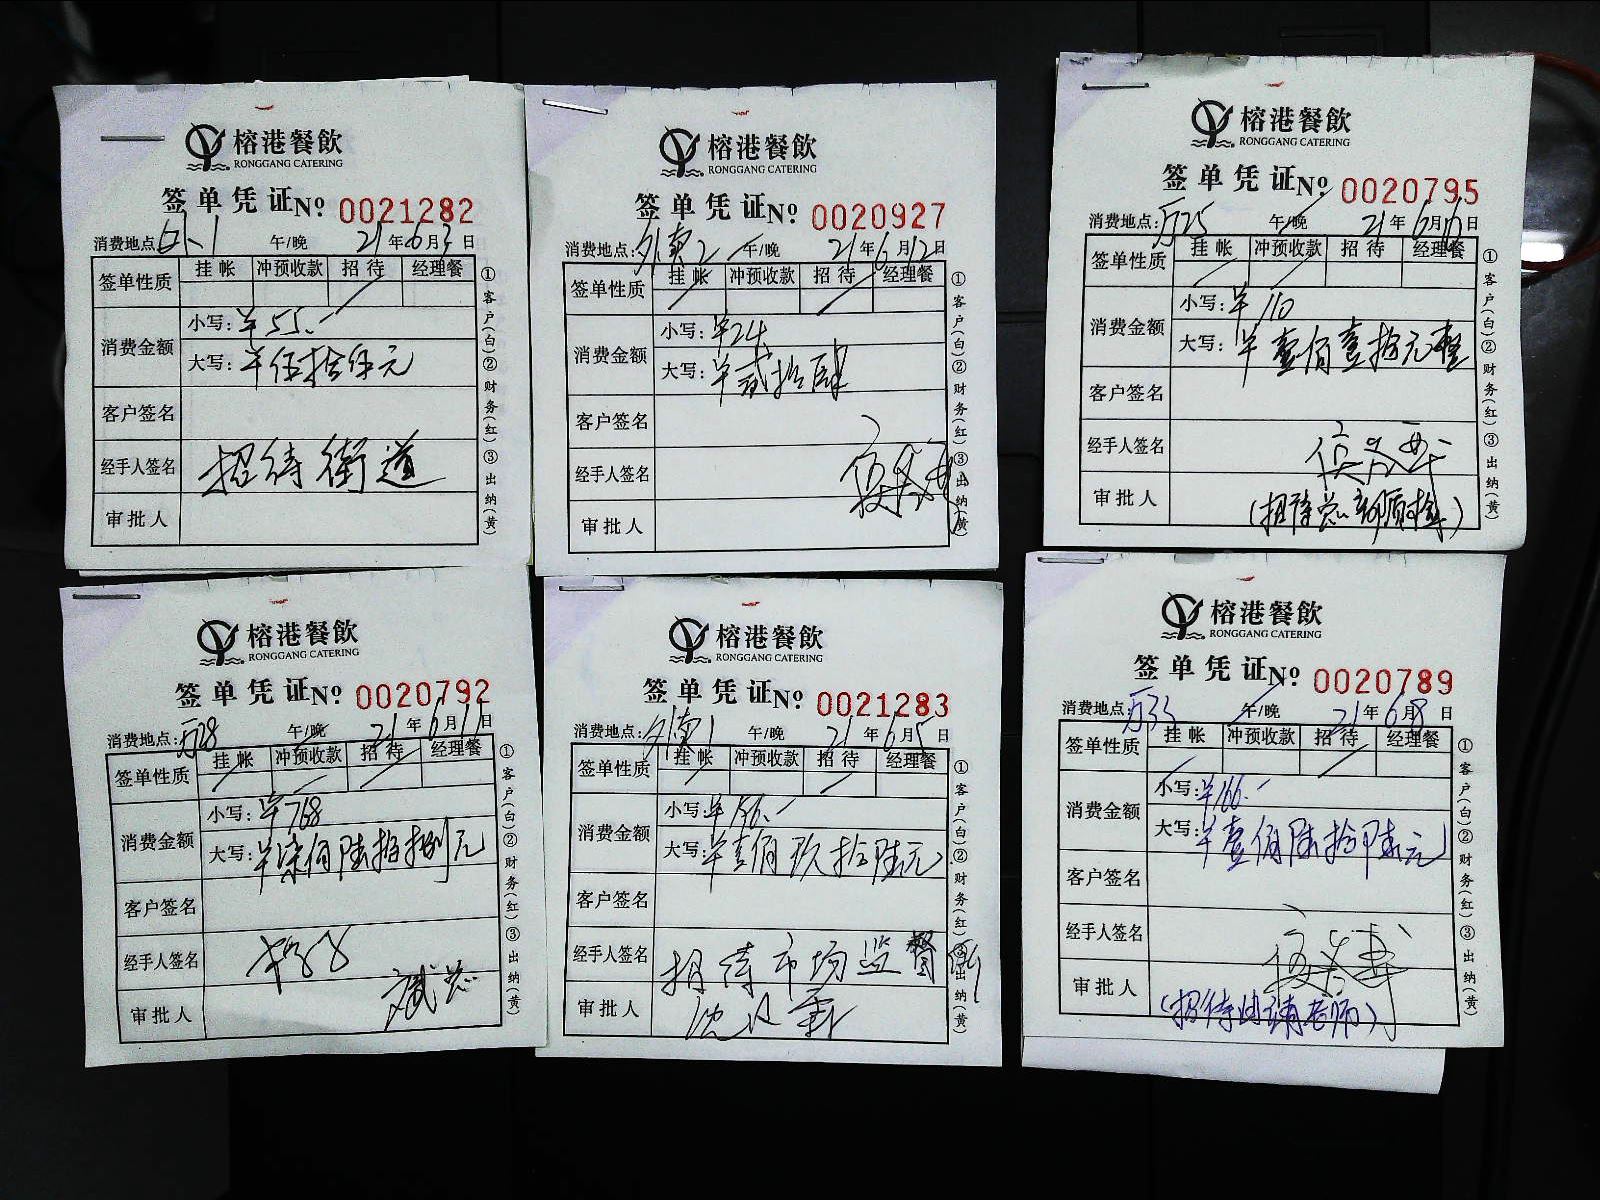 榕港餐飲
RONGGANG CATERING
签单凭证 No 0021282
消费地点: 午/晚 21年6月3日
签单性质 挂帐 冲预收款 招待 经理餐
消费金额 小写: ¥55.-
大写: ¥伍拾伍元
客户签名
经手人签名 招待街道
审批人
①客户(白)②财务(红)③出纳(黄)
榕港餐飲
RONGGANG CATERING
签单凭证 No 0020927
消费地点: 外卖2 午/晚 21年6月12日
签单性质 挂帐 冲预收款 招待 经理餐
消费金额 小写: ¥24
大写: ¥贰拾肆
客户签名
经手人签名
审批人
①客户(白)②财务(红)③出纳(黄)
榕港餐飲
RONGGANG CATERING
签单凭证 No 0020795
消费地点: 厅25 午/晚 21年6月 日
签单性质 挂帐 冲预收款 招待 经理餐
消费金额 小写: ¥110
大写: ¥壹佰壹拾元整
客户签名
经手人签名
审批人 (招待总部质检)
①客户(白)②财务(红)③出纳(黄)
榕港餐飲
RONGGANG CATERING
签单凭证 No 0020792
消费地点: 厅28 午/晚 21年6月11日
签单性质 挂帐 冲预收款 招待 经理餐
消费金额 小写: ¥768
大写: ¥柒佰陆拾捌元
客户签名
经手人签名
审批人
①客户(白)②财务(红)③出纳(黄)
榕港餐飲
RONGGANG CATERING
签单凭证 No 0021283
消费地点: 外卖1 午/晚 21年6月5日
签单性质 挂帐 冲预收款 招待 经理餐
消费金额 小写:
大写: ¥壹佰玖拾陆元
客户签名
经手人签名 招待市场监督所
审批人
①客户(白)②财务(红)③出纳(黄)
榕港餐飲
RONGGANG CATERING
签单凭证 No 0020789
消费地点: 厅33 午/晚 21年6月8日
签单性质 挂帐 冲预收款 招待 经理餐
消费金额 小写: ¥166.-
大写: ¥壹佰陆拾陆元
客户签名
经手人签名
审批人
①客户(白)②财务(红)③出纳(黄)